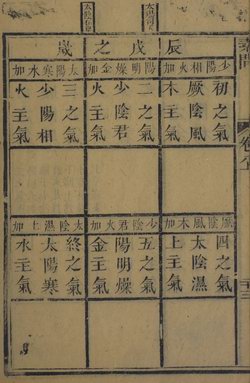 素問
太陽司天
太陰在泉
辰戌之歲
少陽相火加
初之氣
厥陰風
木主氣
陽明燥金加
二之氣
少陰君
火主氣
太陽寒水加
三之氣
少陽相
火主氣
厥陰風木加
四之氣
太陰濕
土主氣
少陰君火加
五之氣
陽明燥
金主氣
太陰濕土加
終之氣
太陽寒
水主氣